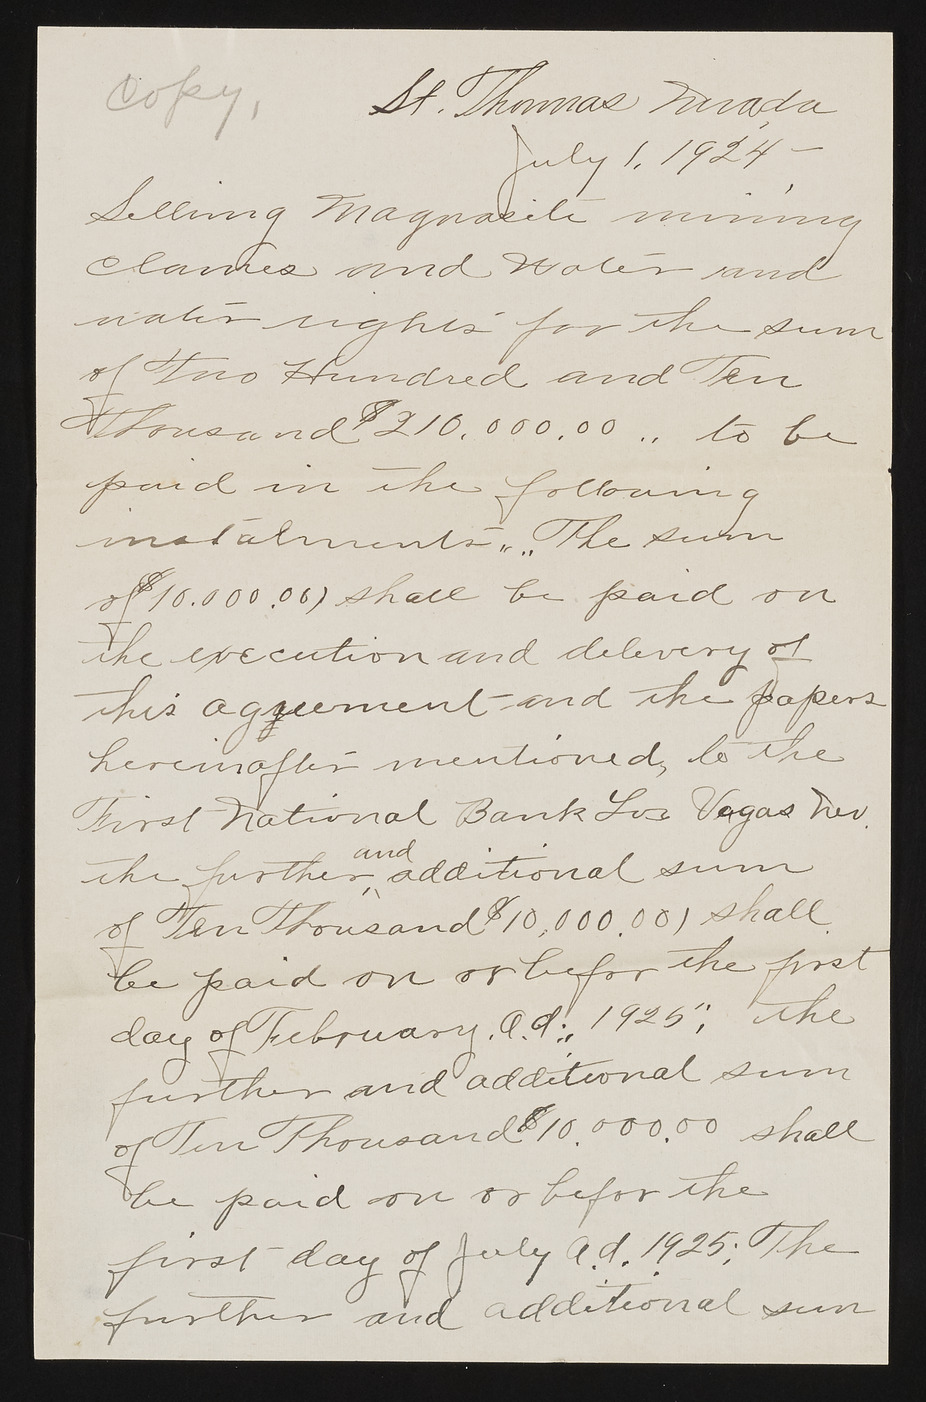 Copy,
St. Thomas Nevada
July 1, 1924 -
Selling Magnasite mining
Claimes and Water and
water rights for the sum
of Two Hundred and Ten
Thousand $210.000.00 .. to be
paid in the following
instalments „ „ The sum
of $10.000.00) shall be paid on
the execution and delevery of
this agreement - and the papers
hereinafter mentioned, to the
First National Bank Los Vegas Nev.
and
the further additional sum
of Ten Thousand $10,000.00) shall
be paid on or befor the first
day of February. A.d. 1925"; the
further and additional sum
of Ten Thousand $10.000.00 shall
be paid on or befor the
first day of July A.d. 1925; The
further and additional sum